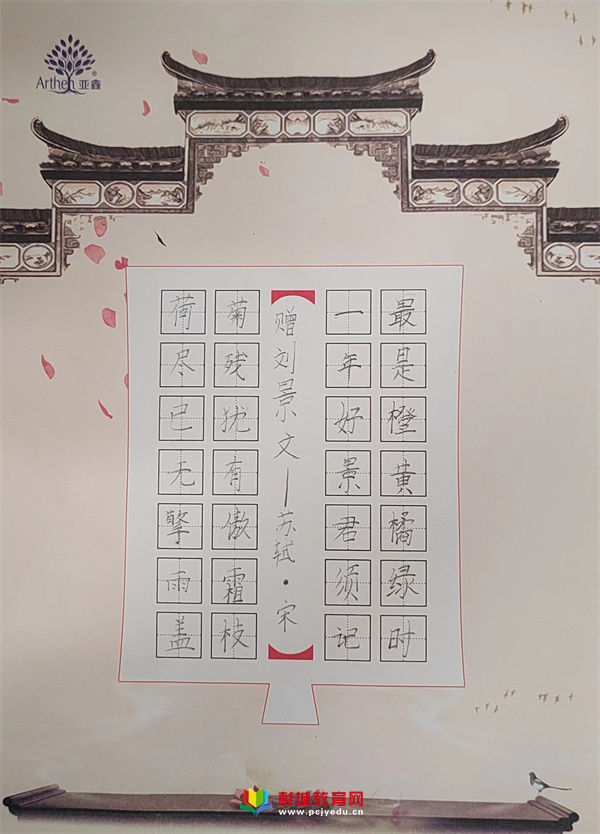 Arthen 亚鑫®
荷尽已无擎雨盖
菊残犹有傲霜枝
赠刘景文—苏轼·宋
一年好景君须记
最是橙黄橘绿时
彭城教育网
www.pcjyedu.cn